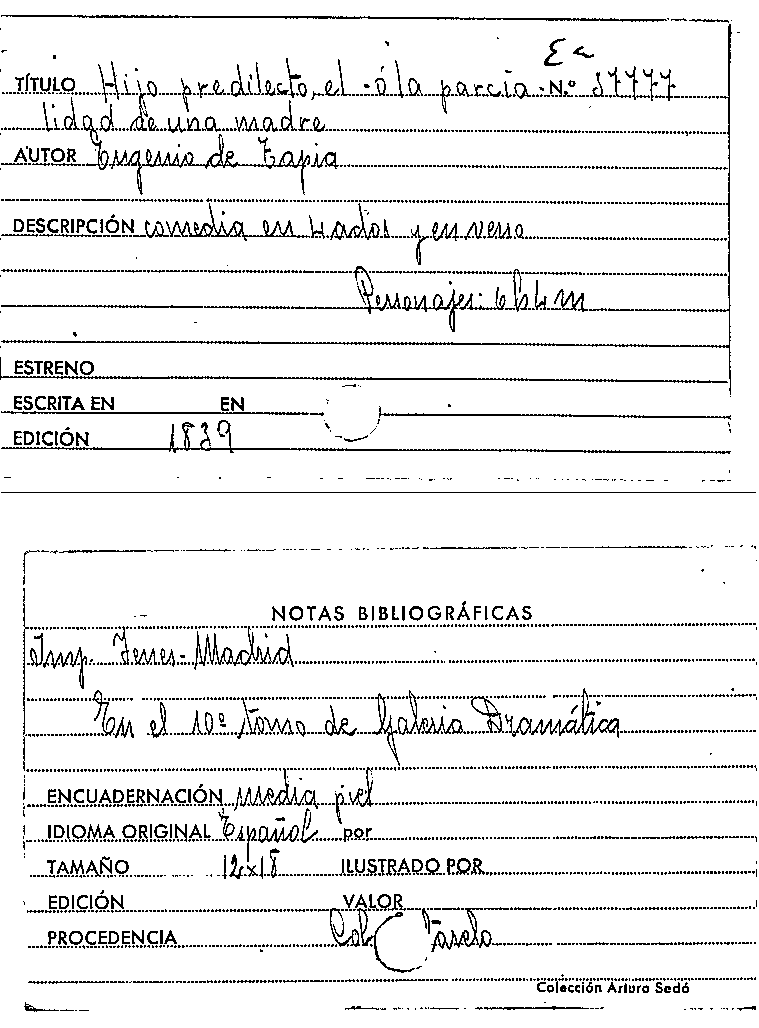 TÍTULO Hijo predilecto, el - ó la parcia- N.º 37777
lidad de una madre
AUTOR Eugenio de Tapia
DESCRIPCIÓN comedia en 4 actos y en verso
Personajes: 6 h 4 m
ESTRENO
ESCRITA EN EN
EDICIÓN 1839
NOTAS BIBLIOGRÁFICAS
Imp. Yenes - Madrid
En el 10º tomo de Galeria Dramática
ENCUADERNACIÓN media piel
IDIOMA ORIGINAL Español por
TAMAÑO 12x18 ILUSTRADO POR
EDICIÓN VALOR
PROCEDENCIA Col
Colección Arturo Sedó